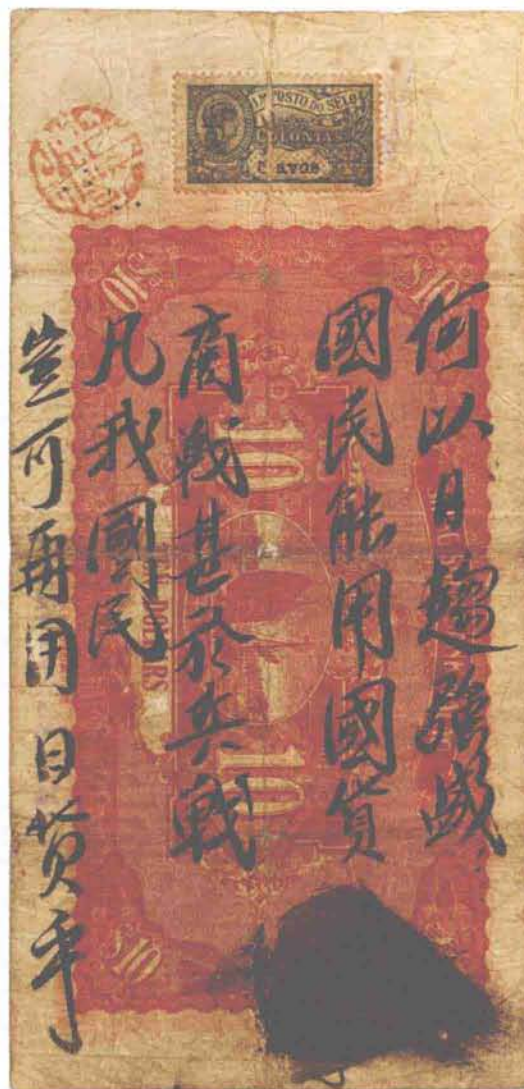 IMPOSTO DO SELO
COLONIAS
AVOS
何以日趨強盛
國民能用國貨
商戰甚於兵戰
凡我國民
豈可再用日貨乎
$10
$10
10
DOLLARS
10
$10